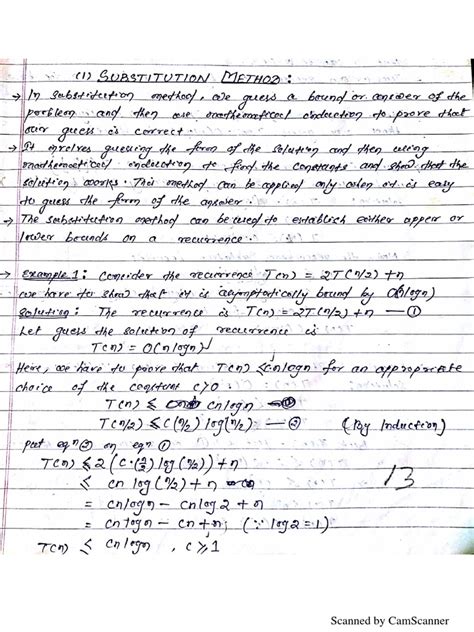 (1) SUBSTITUTION METHOD :
→ In substitution method, we guess a bound or answer of the
problem and then use mathematical induction to prove that
our guess is correct.
→ It involves guessing the form of the solution and then using
mathematical induction to find the constants and show that the
solution works. This method can be applied only when it is easy
to guess the form of the answer.
→ The substitution method can be used to establish either upper or
lower bounds on a recurrence.
→ Example 1: Consider the recurrence T(n) = 2T(n/2) + n
we have to show that it is asymptotically bound by O(nlogn)
Solution: The recurrence is T(n) = 2T(n/2) + n — ①
Let guess the solution of recurrence is
T(n) = O(nlogn)
Here, we have to prove that T(n) ≤ cnlogn for an appropriate
choice of the constant c>0.
T(n) ≤ cnlogn —
T(n/2) ≤ c(n/2) log(n/2) — ② (By Induction)
put eqn ② on eqn ①
T(n) ≤ 2(c·(n/2) log(n/2)) + n
≤ cn log(n/2) + n
= cnlogn − cnlog2 + n
= cnlogn − cn + n; (∵ log2 = 1)
T(n) ≤ cnlogn, c ≥ 1
13
Scanned by CamScanner